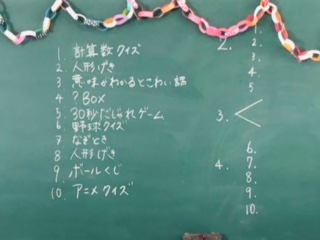 1. 計算数クイズ
2. 人形げき
3. 意味がわかるとこわい話
4 ? BOX
5. 30秒だじゃれゲーム
6 野球クイズ
7 なぞとき
8 人形げき
9 ボールくじ
10. アニメクイズ
2.
2.
3.
4
5
3. <
6.
7.
4.
8.
9.
10.